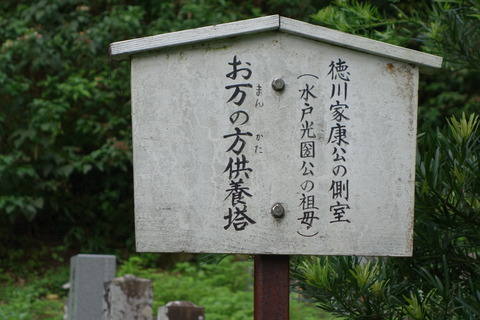 徳川家康公の側室
(水戸光圀公の祖母)
お万の方供養塔
まん かた